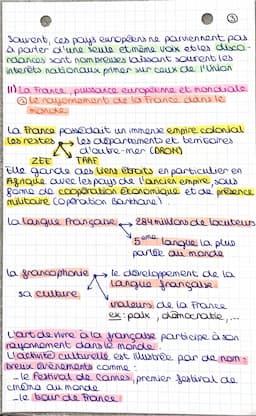 ③
Souvent, ces pays européens ne parviennent pas
à parler d'une seule et même voix et les disco-
rdances sont nombreuses laissant souvent les
intérêts nationaux primer sur ceux de l'Union
II) La France, puissance européenne et mondiale
a) le rayonnement de la France dans le
monde
La France possédait un immense empire colonial
les restes → les départements et territoires
d'outre-mer (DROM)
ZEE TAAF
Elle garde des liens étroits en particulier en
Afrique avec les pays de l'ancien empire, sous
forme de coopération économique et de présence
militaire (opération Barkhane)
la langue française → 284 millions de locuteurs
5eme langue la plus
parlée au monde
la francophonie → le développement de la
langue française
sa culture
valeurs de la France
ex: paix, démocratie,...
L'art de vivre à la française participe à son
rayonnement dans le monde.
L'activité culturelle est illustrée par de nom-
breux évènements comme :
- le Festival de Cannes, premier festival de
cinéma au monde
- le tour de France